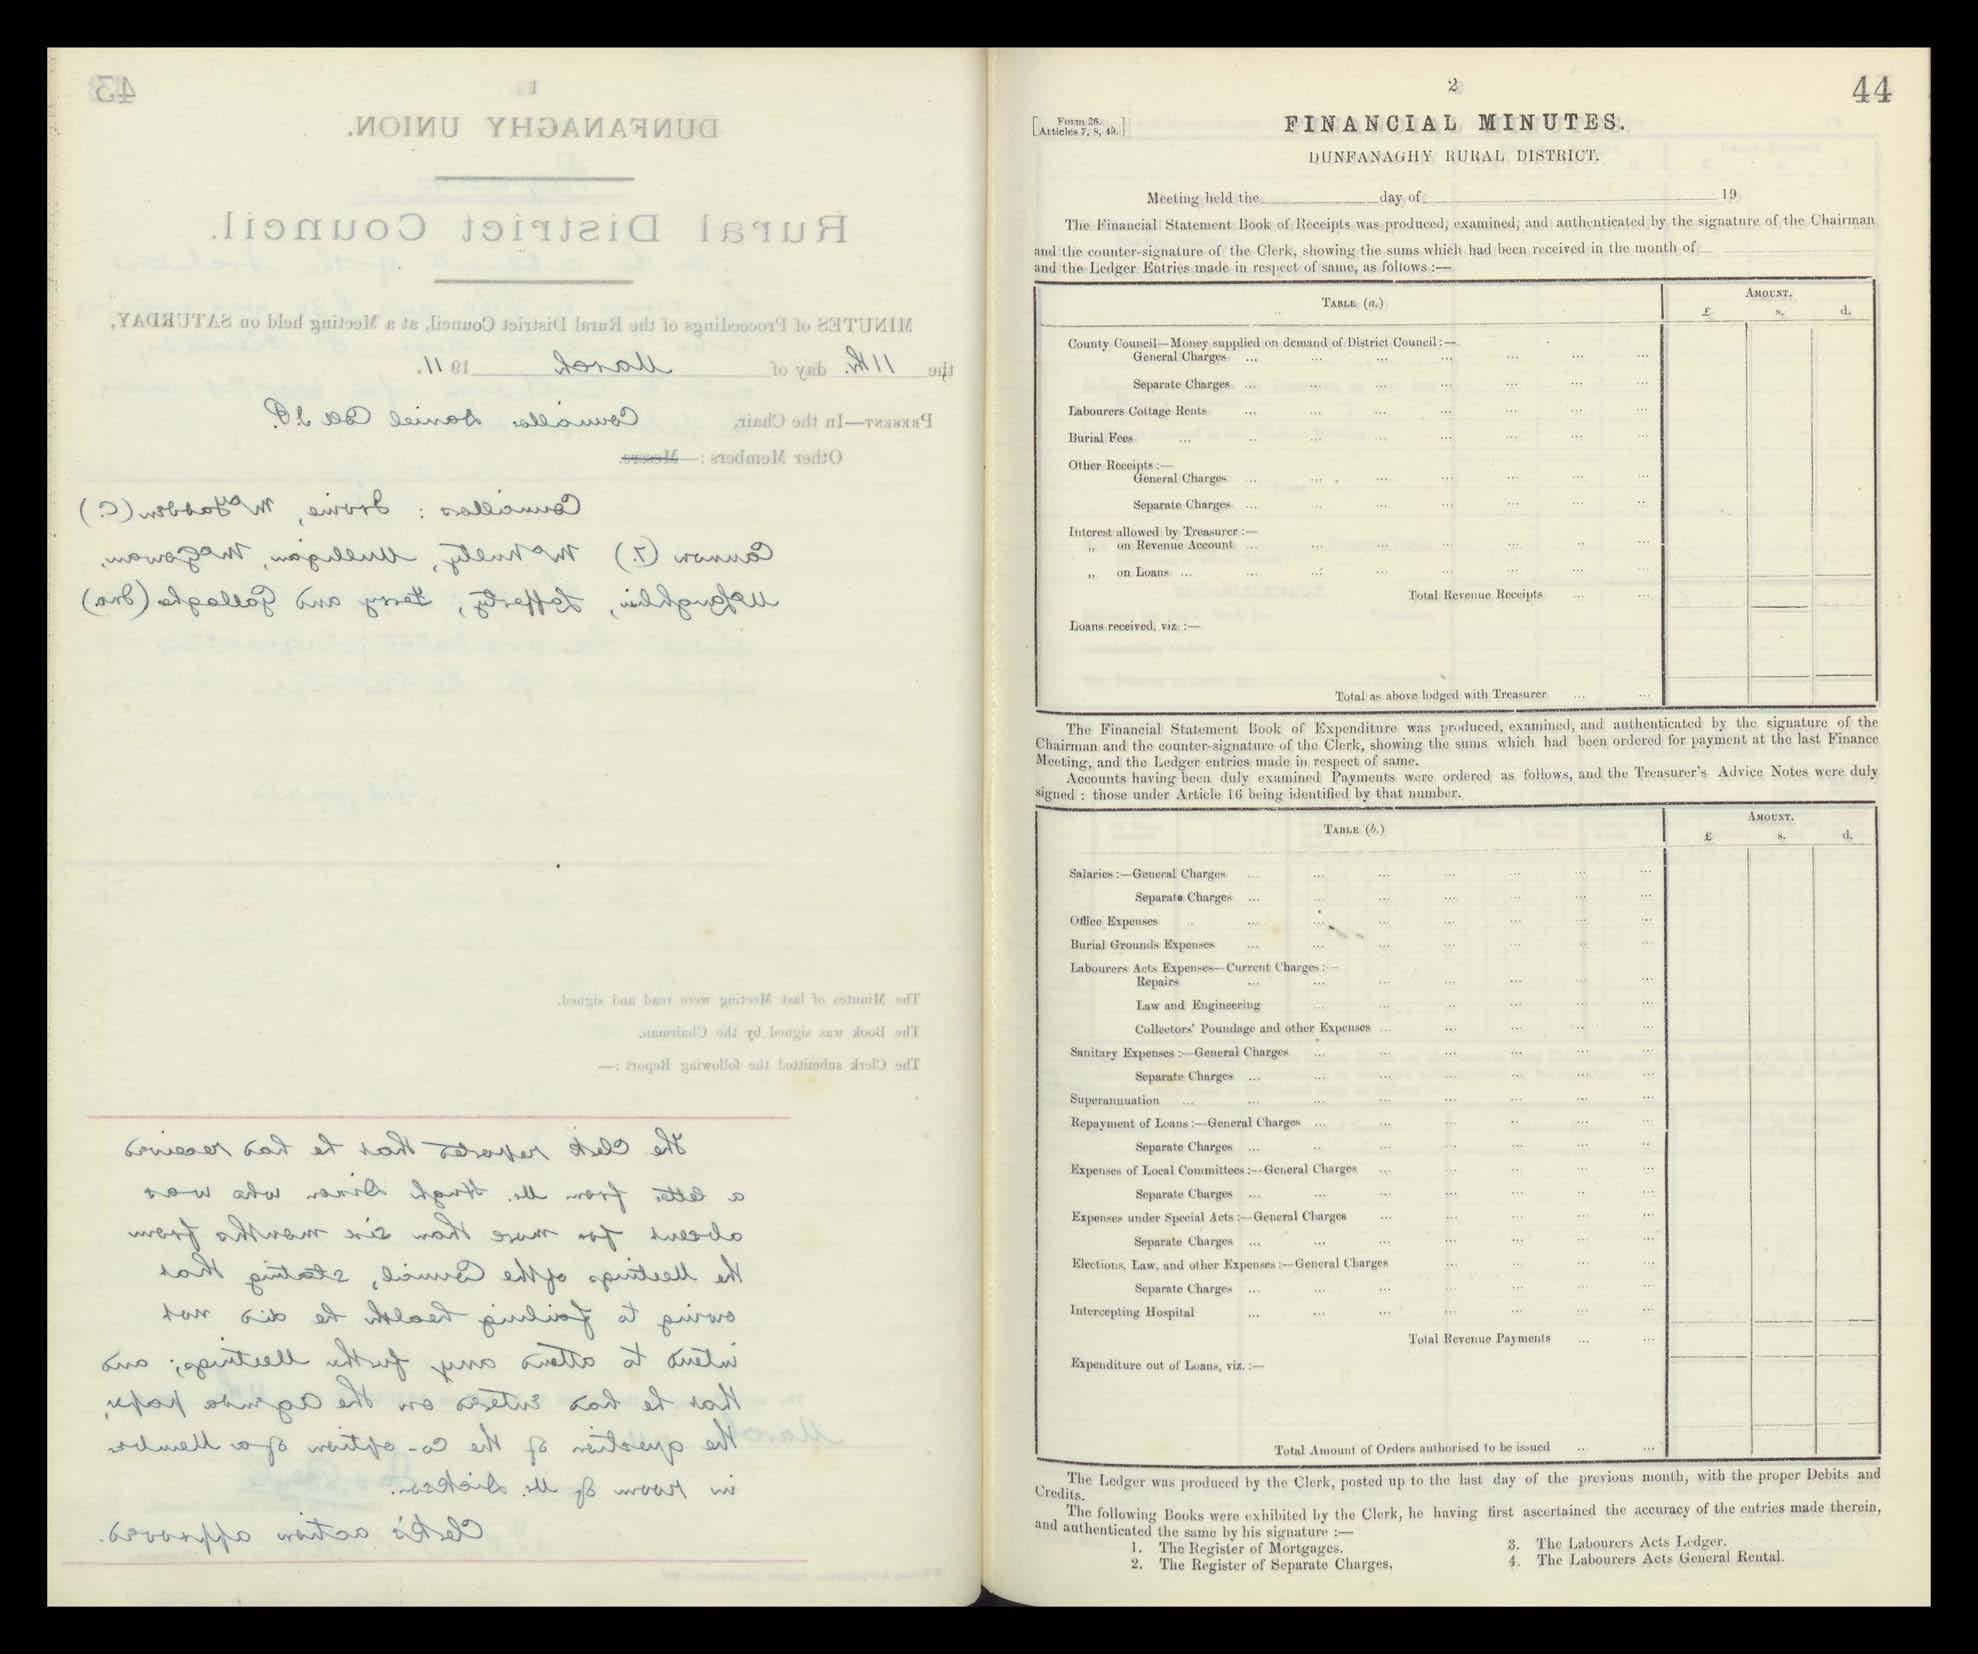 43
1
DUNFANAGHY UNION.
Rural District Council.
MINUTES of Proceedings of the Rural District Council, at a Meeting held on SATURDAY,
the 11th. day of March 1911.
PRESENT—In the Chair, Councillor Daniel Coll J.P.
Other Members: Messrs.
Councillors: Irvine, McFadden (C.)
Cannon (T.) McNulty, Mulligan, McGowan,
McLaughlin, Lafferty, Ferry and Gallagher (Jno)
The Minutes of last Meeting were read and signed.
The Book was signed by the Chairman.
The Clerk submitted the following Report :—
The Clerk reported that he has received
a letter from Mr. Hugh Dixon who was
absent for more than six months from
the Meetings of the Council, stating that
owing to failing health he did not
intend to attend any further Meetings; and
that he has entered on the agenda paper,
the question of the Co-option of a Member
in room of Mr. Dickson.
Clerk's action approved.
2
44
[Form 26. Articles 7, 8, 49.]
FINANCIAL MINUTES.
DUNFANAGHY RURAL DISTRICT.
Meeting held the day of 19
The Financial Statement Book of Receipts was produced, examined, and authenticated by the signature of the Chairman
and the counter-signature of the Clerk, showing the sums which had been received in the month of
and the Ledger Entries made in respect of same, as follows :—
TABLE (a.) AMOUNT.
£ s. d.
County Council—Money supplied on demand of District Council :—
General Charges ... ... ... ... ... ... ...
Separate Charges ... ... ... ... ... ... ...
Labourers Cottage Rents ... ... ... ... ... ... ...
Burial Fees ... ... ... ... ... ... ... ...
Other Receipts :—
General Charges ... ... ... ... ... ... ...
Separate Charges ... ... ... ... ... ... ...
Interest allowed by Treasurer :—
„ on Revenue Account ... ... ... ... ... ... ...
„ on Loans ... ... ... ... ... ... ... ...
Total Revenue Receipts ... ...
Loans received, viz. :—
Total as above lodged with Treasurer ... ...
The Financial Statement Book of Expenditure was produced, examined, and authenticated by the signature of the
Chairman and the counter-signature of the Clerk, showing the sums which had been ordered for payment at the last Finance
Meeting, and the Ledger entries made in respect of same.
Accounts having been duly examined Payments were ordered as follows, and the Treasurer's Advice Notes were duly
signed : those under Article 16 being identified by that number.
TABLE (b.) AMOUNT.
£ s. d.
Salaries :—General Charges ... ... ... ... ... ... ...
Separate Charges ... ... ... ... ... ... ...
Office Expenses ... ... ... ... ... ... ... ...
Burial Grounds Expenses ... ... ... ... ... ... ...
Labourers Acts Expenses—Current Charges :—
Repairs ... ... ... ... ... ... ...
Law and Engineering ... ... ... ... ... ...
Collectors' Poundage and other Expenses ... ... ... ... ...
Sanitary Expenses :—General Charges ... ... ... ... ... ...
Separate Charges ... ... ... ... ... ... ...
Superannuation ... ... ... ... ... ... ... ...
Repayment of Loans :—General Charges ... ... ... ... ... ...
Separate Charges ... ... ... ... ... ... ...
Expenses of Local Committees :—General Charges ... ... ... ... ...
Separate Charges ... ... ... ... ... ... ...
Expenses under Special Acts :—General Charges ... ... ... ... ...
Separate Charges ... ... ... ... ... ... ...
Elections, Law, and other Expenses :—General Charges ... ... ... ...
Separate Charges ... ... ... ... ... ... ...
Intercepting Hospital ... ... ... ... ... ... ...
Total Revenue Payments ... ...
Expenditure out of Loans, viz. :—
Total Amount of Orders authorised to be issued ... ...
The Ledger was produced by the Clerk, posted up to the last day of the previous month, with the proper Debits and
Credits.
The following Books were exhibited by the Clerk, he having first ascertained the accuracy of the entries made therein,
and authenticated the same by his signature :—
1. The Register of Mortgages. 3. The Labourers Acts Ledger.
2. The Register of Separate Charges. 4. The Labourers Acts General Rental.